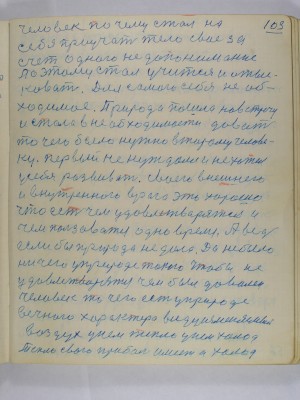 103
человек почему стал на
себя приучать тело свое за
счет одного недопонимание
Поэтому стал учится и отыс-
ковать. Для самого себя не об-
ходимое. Природа пошла навстречу
и стала в необходимости довать
то чего было нужно второму челове-
ку. первый не нуждался и не хотел
у себя развивать. своего внешнего
и внутреннего врага это хорошо
что есть чем удовлетварятся и
чем ползовати одно время. А вед
если бы природа не дала. Да небыло
ничего у природе такого чтобы не
удовлетварятся чем был доволен
человек то чего ест у природе
вечного характера видуиземляния
воздух у нем тепло у нем холод
тепло свого прибал имеет и холод